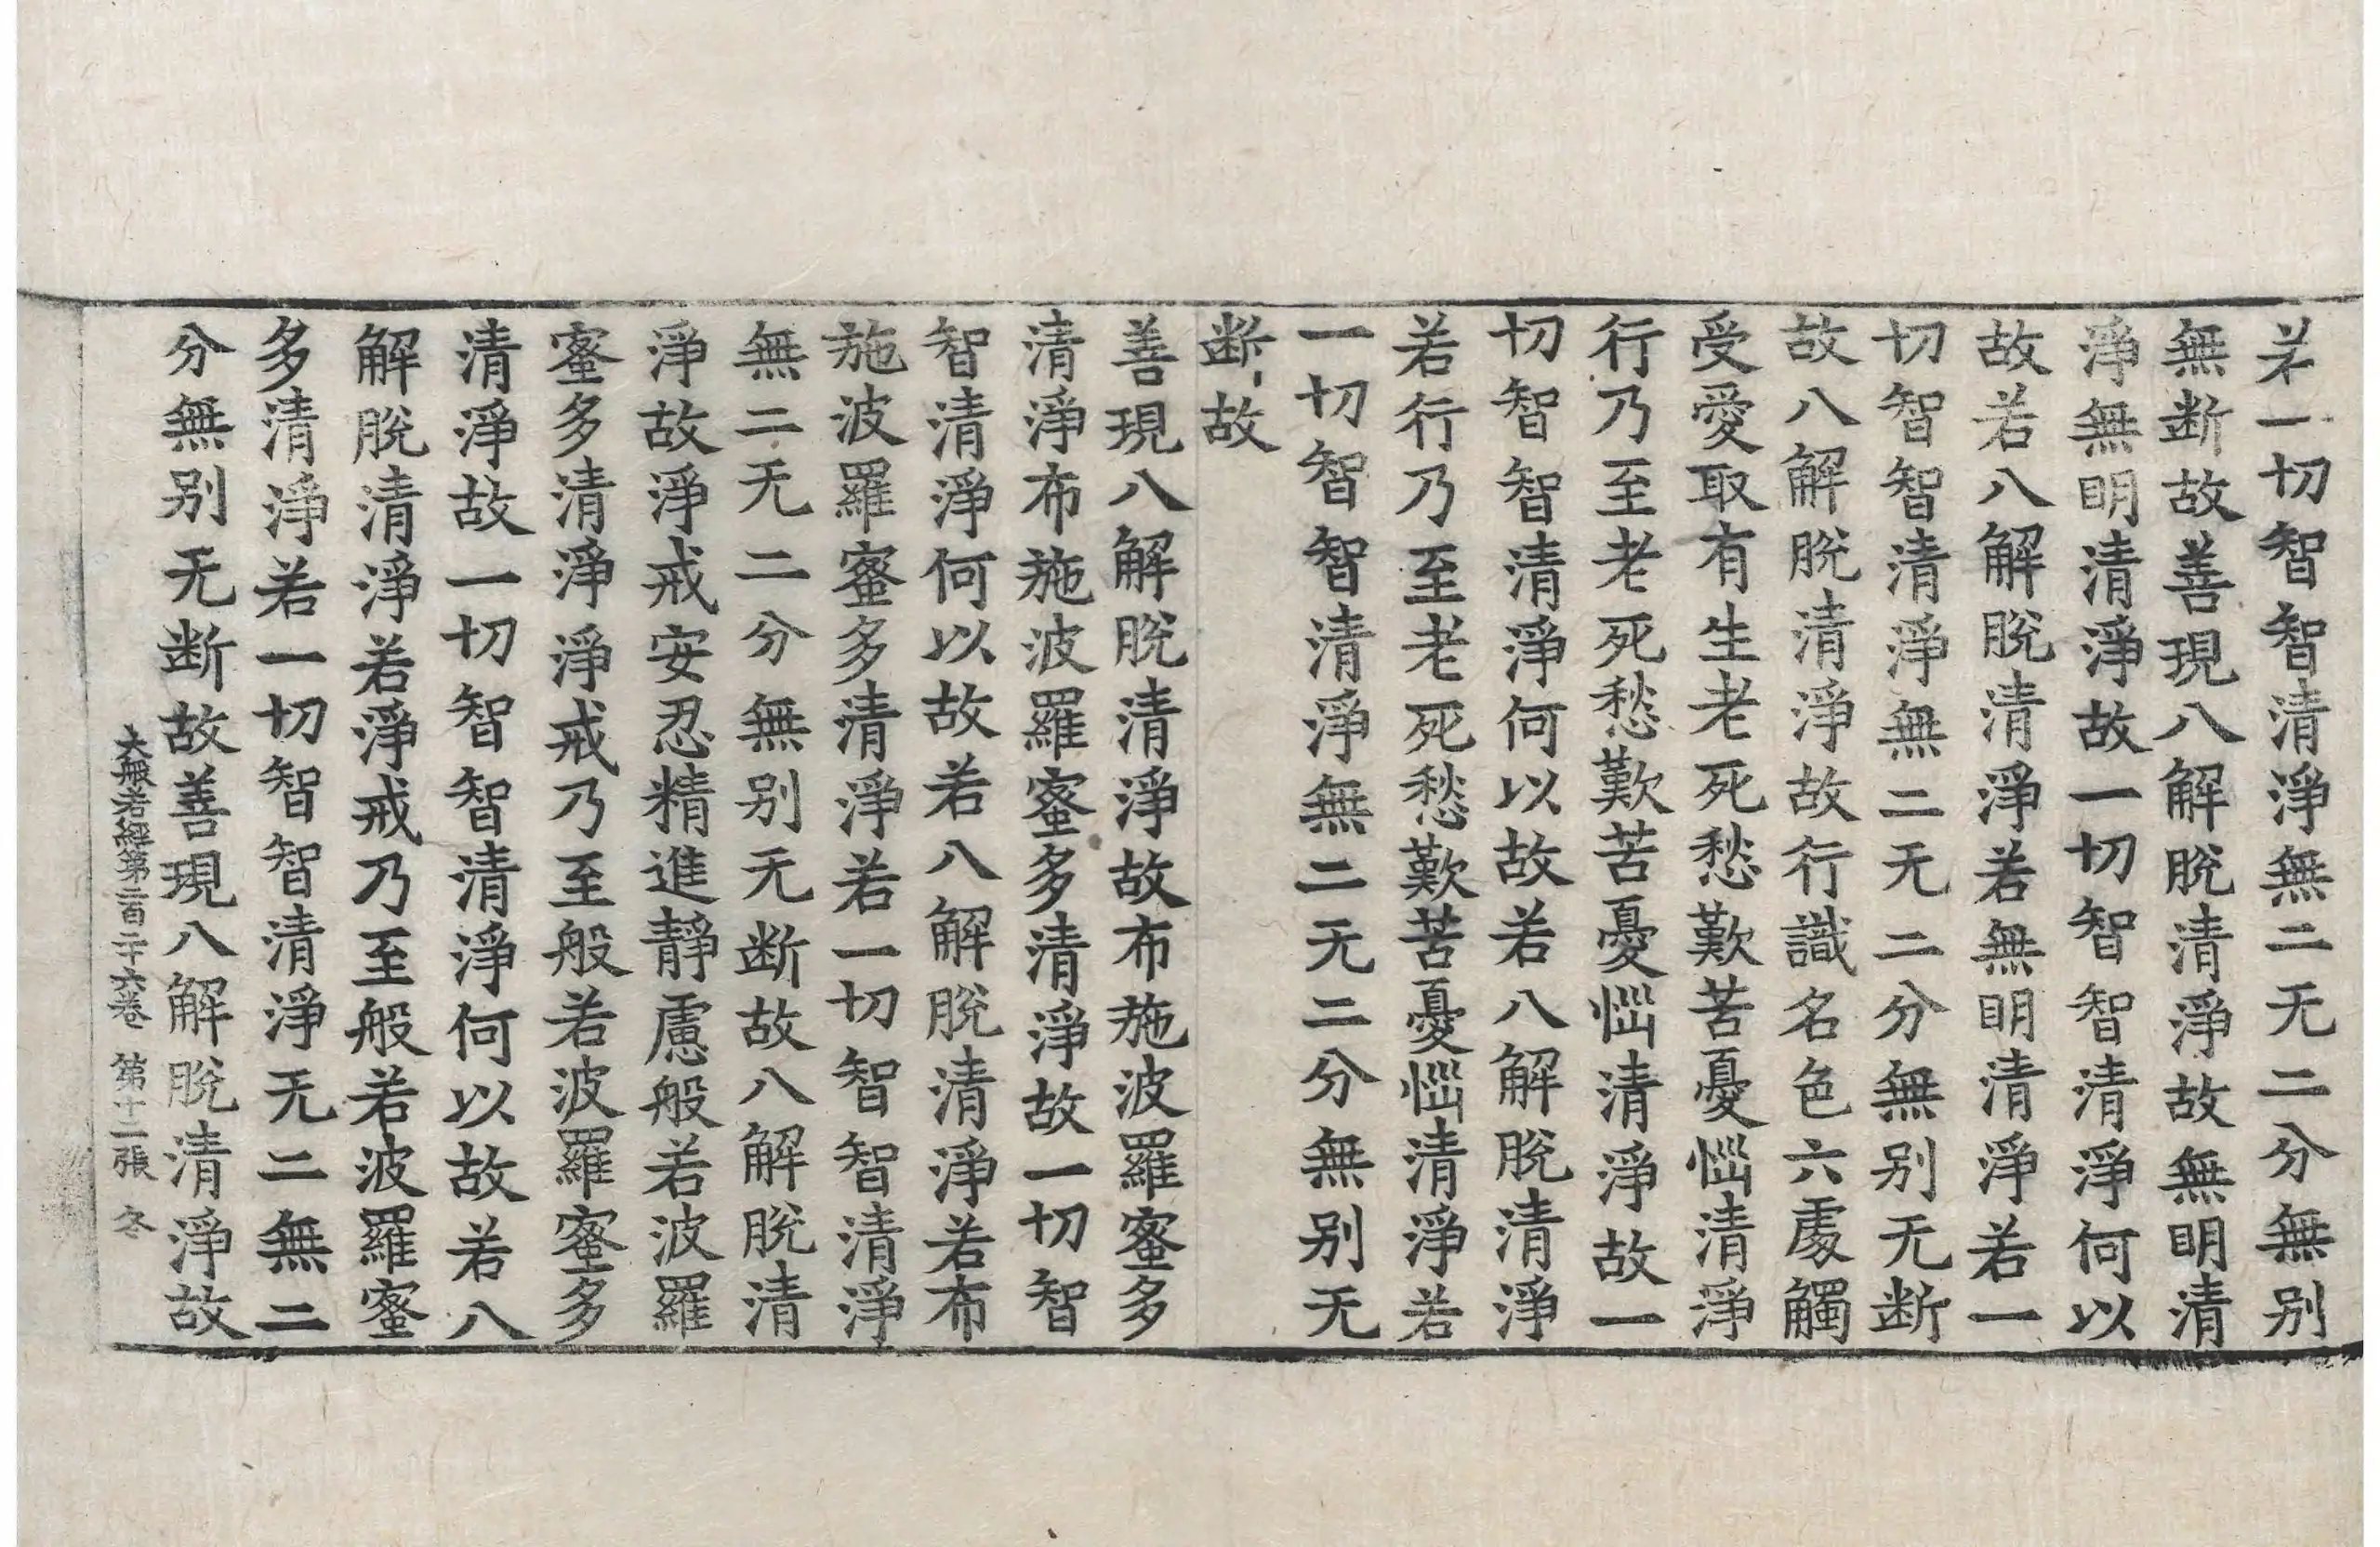 若一切智智清淨無二无二分無别
無断故善現八解脫清淨故無明清
淨無明清淨故一切智智清淨何以
故若八解脫清淨若無明清淨若一
切智智清淨無二无二分無别无断
故八解脫清淨故行識名色六處觸
受愛取有生老死愁歎苦憂惱清淨
行乃至老死愁歎苦憂惱清淨故一
切智智清淨何以故若八解脫清淨
若行乃至老死愁歎苦憂惱清淨若
一切智智清淨無二无二分無别无
断故
善現八解脫清淨故布施波羅蜜多
清淨布施波羅蜜多清淨故一切智
智清淨何以故若八解脫清淨若布
施波羅蜜多清淨若一切智智清淨
無二无二分無别无断故八解脫清
淨故淨戒安忍精進靜慮般若波羅
蜜多清淨淨戒乃至般若波羅蜜多
清淨故一切智智清淨何以故若八
解脫清淨若淨戒乃至般若波羅蜜
多清淨若一切智智清淨无二無二
分無别无断故善現八解脫清淨故
大般若經第二百二十六卷 第十二張 冬